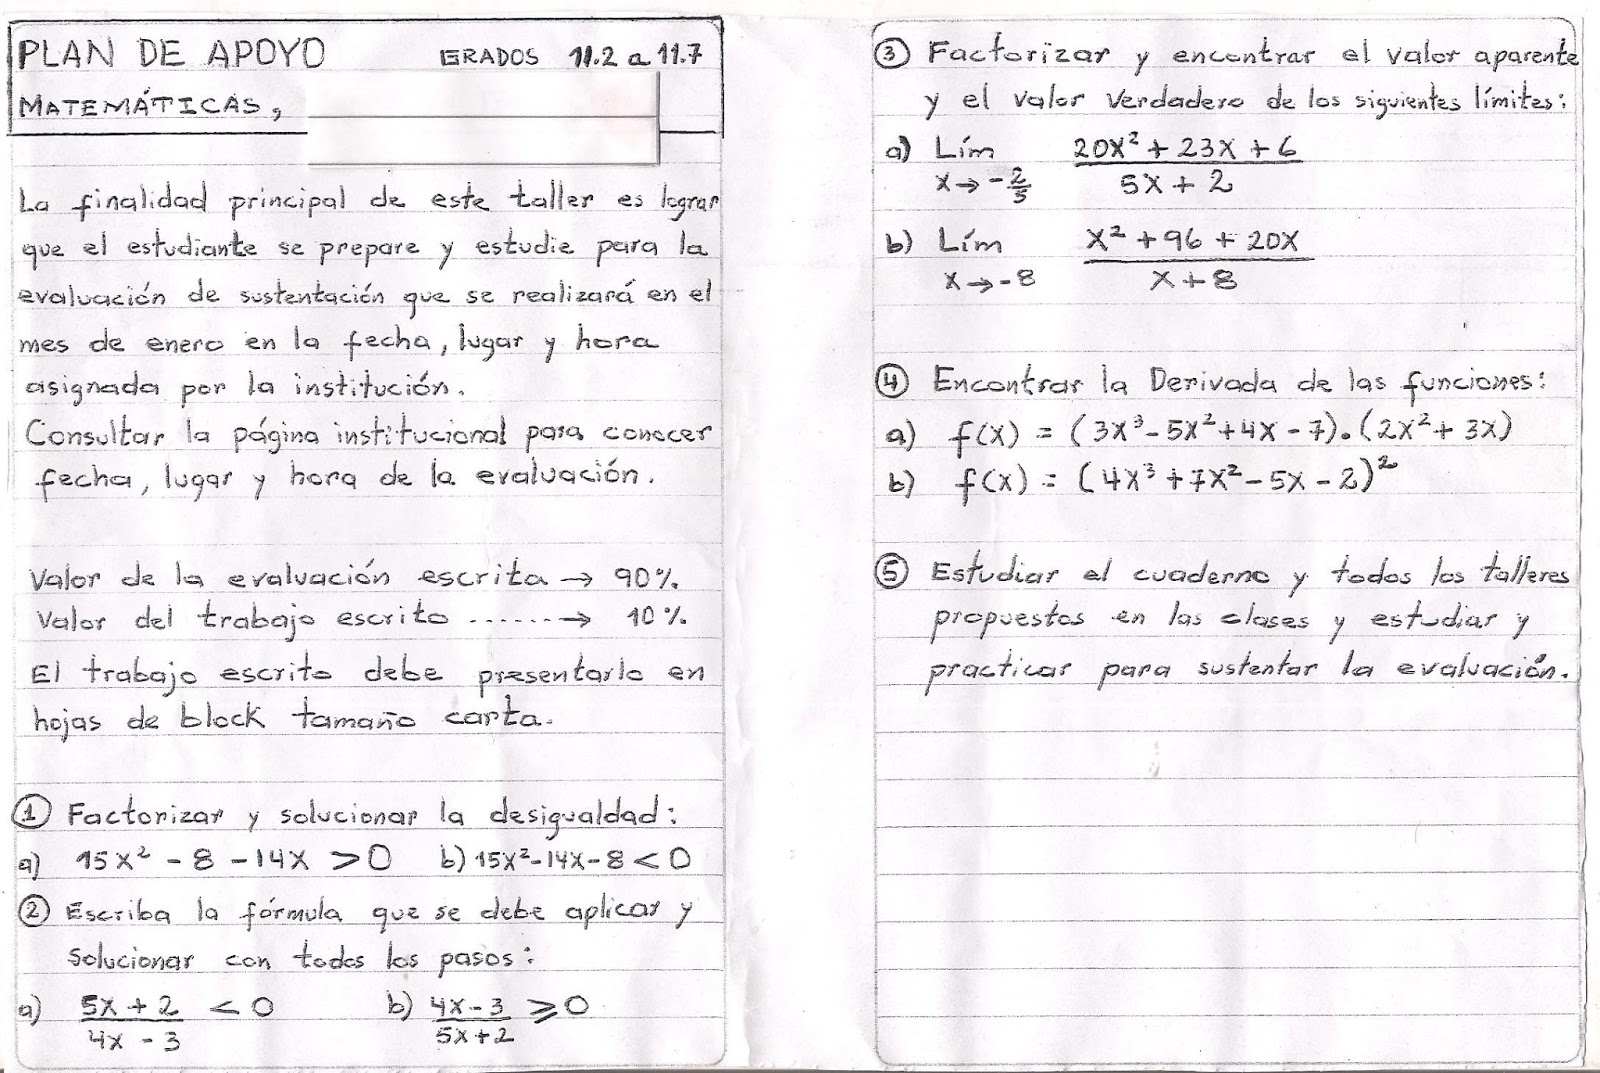 PLAN DE APOYO GRADOS 11.2 a 11.7
MATEMÁTICAS,
La finalidad principal de este taller es lograr
que el estudiante se prepare y estudie para la
evaluación de sustentación que se realizará en el
mes de enero en la fecha, lugar y hora
asignada por la institución.
Consultar la página institucional para conocer
fecha, lugar y hora de la evaluación.
Valor de la evaluación escrita → 90%.
Valor del trabajo escrito .......→ 10%.
El trabajo escrito debe presentarlo en
hojas de block tamaño carta.
① Factorizar y solucionar la desigualdad:
a) 15x² - 8 - 14x > 0 b) 15x² - 14x - 8 < 0
② Escriba la fórmula que se debe aplicar y
solucionar con todos los pasos:
a) 5x + 2 < 0 b) 4x - 3 ≥ 0
4x - 3 5x + 2
③ Factorizar y encontrar el valor aparente
y el valor verdadero de los siguientes límites:
a) Lím 20x² + 23x + 6
x → -2/5 5x + 2
b) Lím x² + 96 + 20x
x → -8 x + 8
④ Encontrar la Derivada de las funciones:
a) f(x) = (3x³ - 5x² + 4x - 7).(2x² + 3x)
b) f(x) = (4x³ + 7x² - 5x - 2)²
⑤ Estudiar el cuaderno y todos los talleres
propuestos en las clases y estudiar y
practicar para sustentar la evaluación.